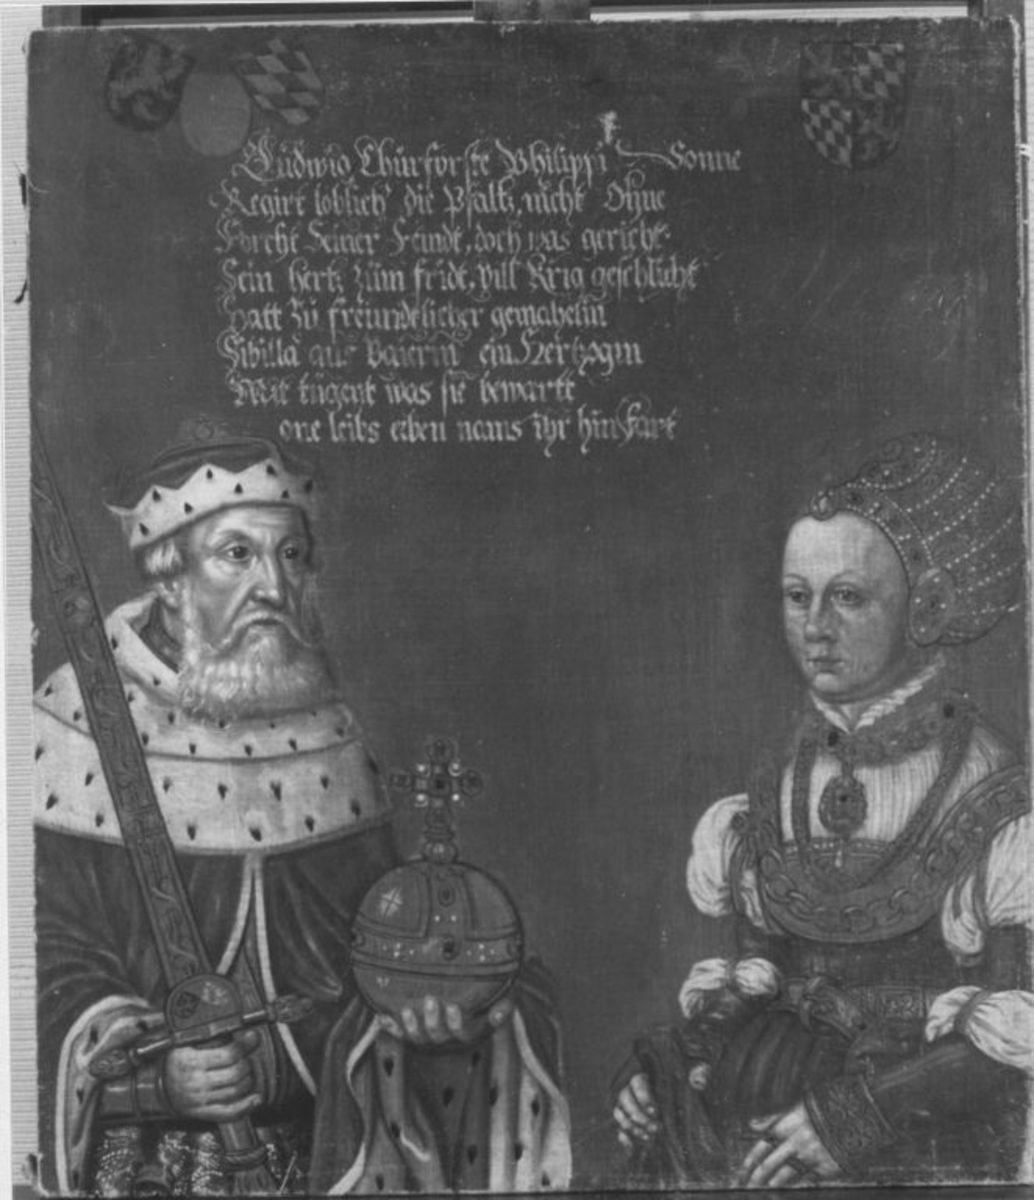 Ludwig Churforste Philippi Sonne
Regirt loblich die Pfaltz, nicht Ohne
Forcht Seiner Feindt, doch was gericht
Sein hertz zům fridt, vill Krig geschlicht
Hatt Zů freundtlicher gemahelin
Sibilla aus Baierin ein Hertzogin
Mit tůgent was sie bewartt
one leibs erben ihr hinfart